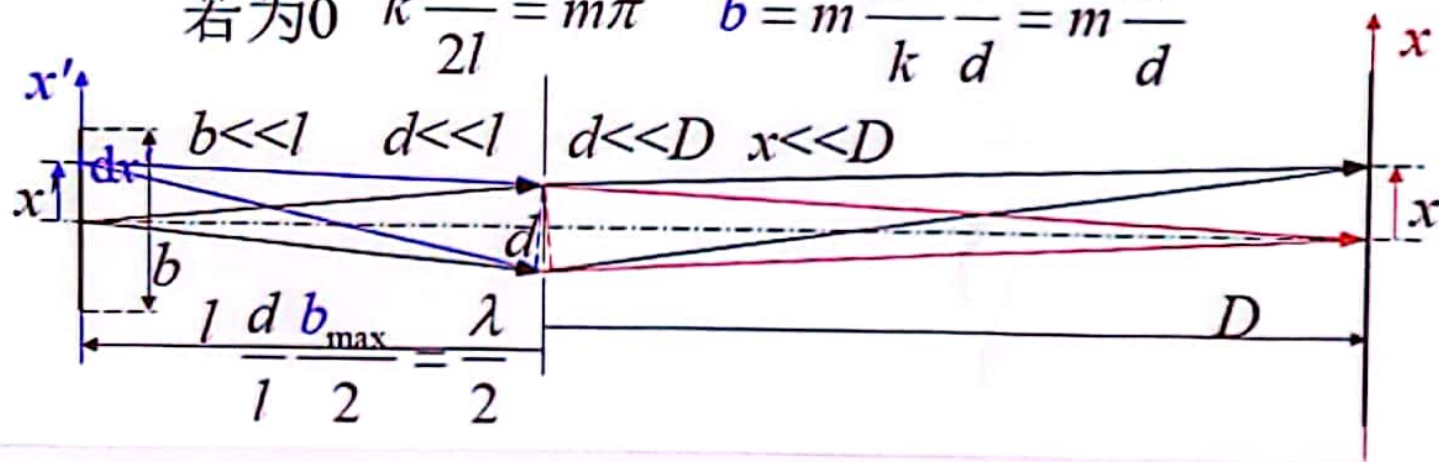 若为0 k/2l = mπ b = m /k /d = m /d
x' x
b<<l d<<l d<<D x<<D
dx'
x' x
d
b
l D
d/l b_max/2 = λ/2